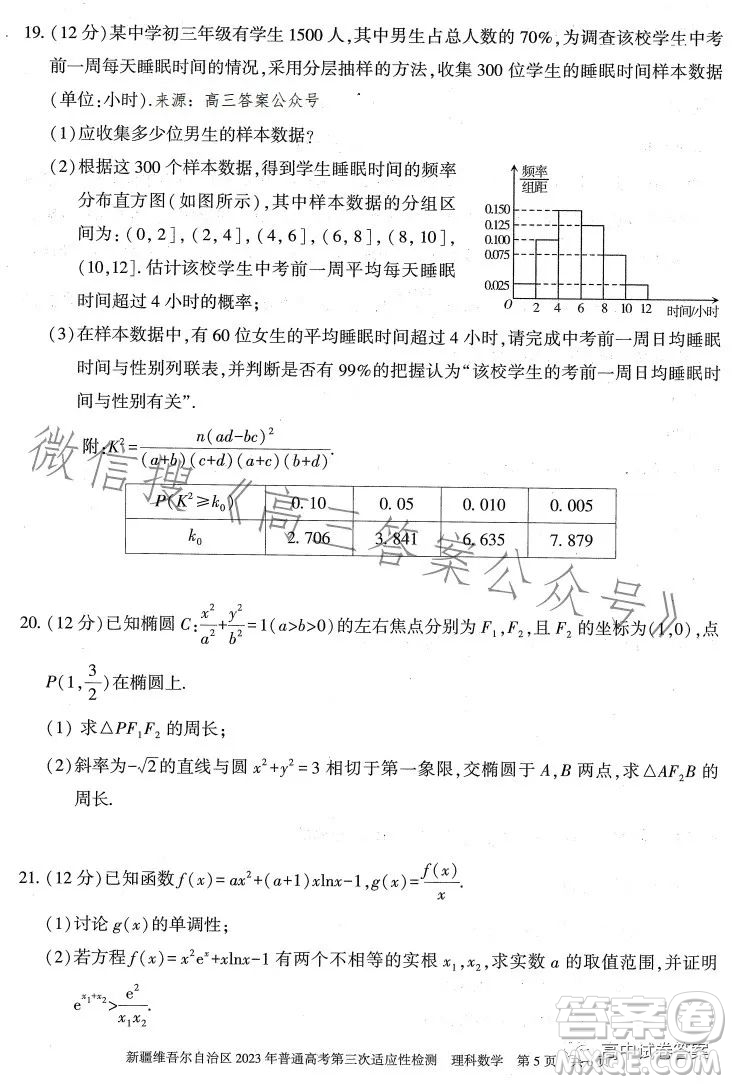 19. (12 分)某中学初三年级有学生 1500 人,其中男生占总人数的 70%,为调查该校学生中考
前一周每天睡眠时间的情况,采用分层抽样的方法,收集 300 位学生的睡眠时间样本数据
(单位:小时). 来源：高三答案公众号
(1)应收集多少位男生的样本数据?
(2)根据这 300 个样本数据,得到学生睡眠时间的频率
分布直方图(如图所示),其中样本数据的分组区
间为:(0,2],(2,4],(4,6],(6,8],(8,10],
(10,12]. 估计该校学生中考前一周平均每天睡眠
时间超过 4 小时的概率;
频率
组距
0.150
0.125
0.100
0.075
0.025
O 2 4 6 8 10 12 时间/小时
(3)在样本数据中,有 60 位女生的平均睡眠时间超过 4 小时,请完成中考前一周日均睡眠
时间与性别列联表,并判断是否有 99%的把握认为“该校学生的考前一周日均睡眠时
间与性别有关”.
附:K²=n(ad-bc)²/((a+b)(c+d)(a+c)(b+d)).
P(K²≥k₀) 0.10 0.05 0.010 0.005
k₀ 2.706 3.841 6.635 7.879
微信搜《高三答案公众号》
20. (12 分)已知椭圆 C:x²/a²+y²/b²=1(a>b>0)的左右焦点分别为 F₁,F₂,且 F₂ 的坐标为(1,0),点
P(1,3/2)在椭圆上.
(1) 求△PF₁F₂ 的周长;
(2)斜率为-√2的直线与圆 x²+y²=3 相切于第一象限,交椭圆于 A,B 两点,求△AF₂B 的
周长.
21. (12 分)已知函数 f(x)=ax²+(a+1)xlnx-1,g(x)=f(x)/x.
(1)讨论 g(x)的单调性;
(2)若方程 f(x)=x²eˣ+xlnx-1 有两个不相等的实根 x₁,x₂,求实数 a 的取值范围,并证明
e^(x₁+x₂)>e²/(x₁x₂).
新疆维吾尔自治区 2023 年普通高考第三次适应性检测 理科数学 第 5 页
答案圈
高中试卷答案